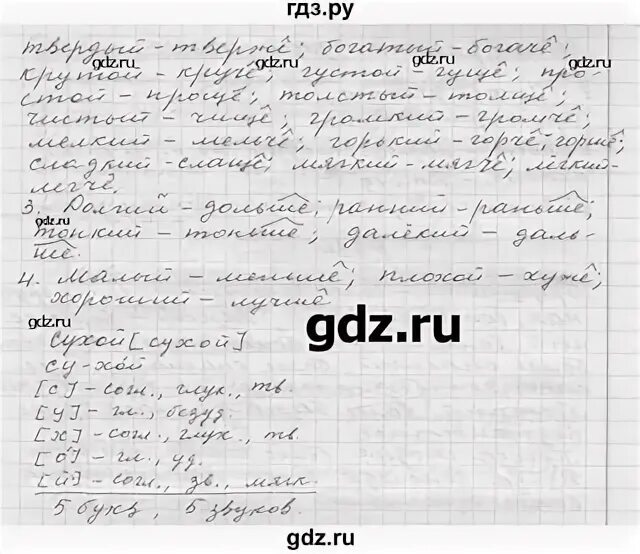 гдз.ру
твердый - твержê; богатый - богачê;
крутой - кручê; густой - гущê; про-
стой - прощê; толстый - толщê;
чистый - чищê; громкий - громчê;
мелкий - мельчê; горький - горчê, горшê;
сладкий - слащê; мягкий - мягчê; лёгкий -
легчê.
3. Долгий - дольше; ранний - раньше;
тонкий - тоньше; далёкий - даль-
ше.
4. Малый - меньшê; плохой - хужê;
хороший - лучшê
сухой [сухой]
су-хо́й
[с] - согл., глух., тв.
[у] - гл., безуд.
[х] - согл., глух., тв.
[о́] - гл., уд.
[й] - согл., зв., мягк.
5 букв, 5 звуков.
gdz.ru
gdz.ru
gdz.ru
gdz.ru
gdz.ru
gdz.ru
gdz.ru
gdz.ru
gdz.ru
gdz.ru
gdz.ru
gdz.ru